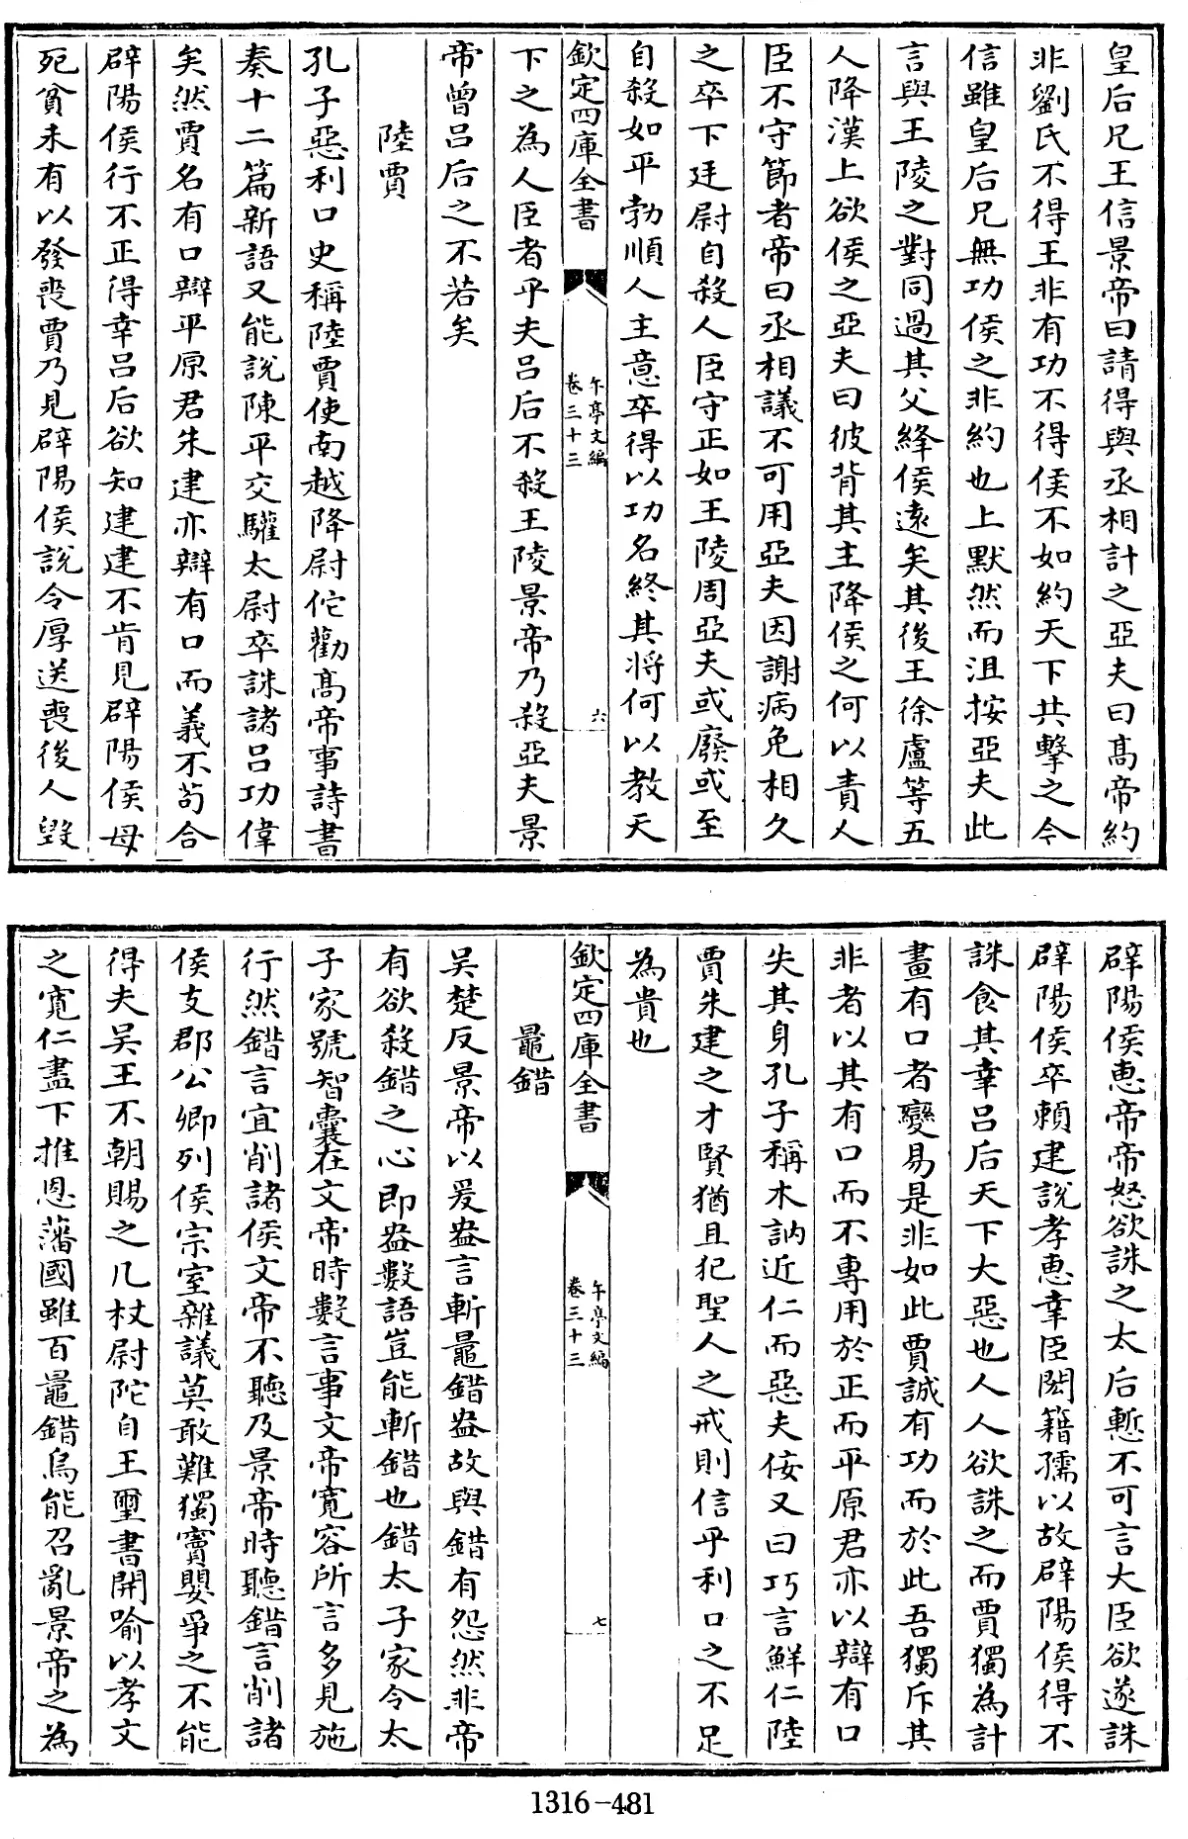 皇后兄王信景帝曰請得與丞相計之亞夫曰髙帝約
非劉氏不得王非有功不得侯不如約天下共擊之今
信雖皇后兄無功侯之非約也上默然而沮按亞夫此
言與王陵之對同過其父絳侯逺矣其後王徐盧等五
人降漢上欲侯之亞夫曰彼背其主降侯之何以責人
臣不守節者帝曰丞相議不可用亞夫因謝病免相久
之卒下廷尉自殺人臣守正如王陵周亞夫或廢或至
自殺如平勃順人主意卒得以功名終其將何以教天
欽定四庫全書
午亭文編
卷三十三
六
下之為人臣者乎夫吕后不殺王陵景帝乃殺亞夫景
帝曾吕后之不若矣
陸賈
孔子惡利口史稱陸賈使南越降尉佗勸髙帝事詩書
奏十二篇新語又能説陳平交驩太尉卒誅諸吕功偉
矣然賈名有口辯平原君朱建亦辯有口而義不茍合
辟陽侯行不正得幸吕后欲知建建不肯見辟陽侯母
死貧未有以發喪賈乃見辟陽侯説令厚送喪後人毀
辟陽侯惠帝帝怒欲誅之太后慙不可言大臣欲遂誅
辟陽侯卒賴建説孝惠幸臣閎籍孺以故辟陽侯得不
誅食其幸吕后天下大惡也人人欲誅之而賈獨為計
畫有口者變易是非如此賈誠有功而於此吾獨斥其
非者以其有口而不專用於正而平原君亦以辯有口
失其身孔子稱木訥近仁而惡夫佞又曰巧言鮮仁陸
賈朱建之才賢猶且犯聖人之戒則信乎利口之不足
為貴也
欽定四庫全書
午亭文編
卷三十三
七
鼂錯
吴楚反景帝以爰盎言斬鼂錯盎故與錯有怨然非帝
有欲殺錯之心即盎數語豈能斬錯也錯太子家令太
子家號智囊在文帝時數言事文帝寛容所言多見施
行然錯言宜削諸侯文帝不聽及景帝時聽錯言削諸
侯支郡公卿列侯宗室雜議莫敢難獨竇嬰爭之不能
得夫吴王不朝賜之几杖尉陀自王璽書開喻以孝文
之寛仁盡下推恩藩國雖百鼂錯烏能召亂景帝之為
1316-481